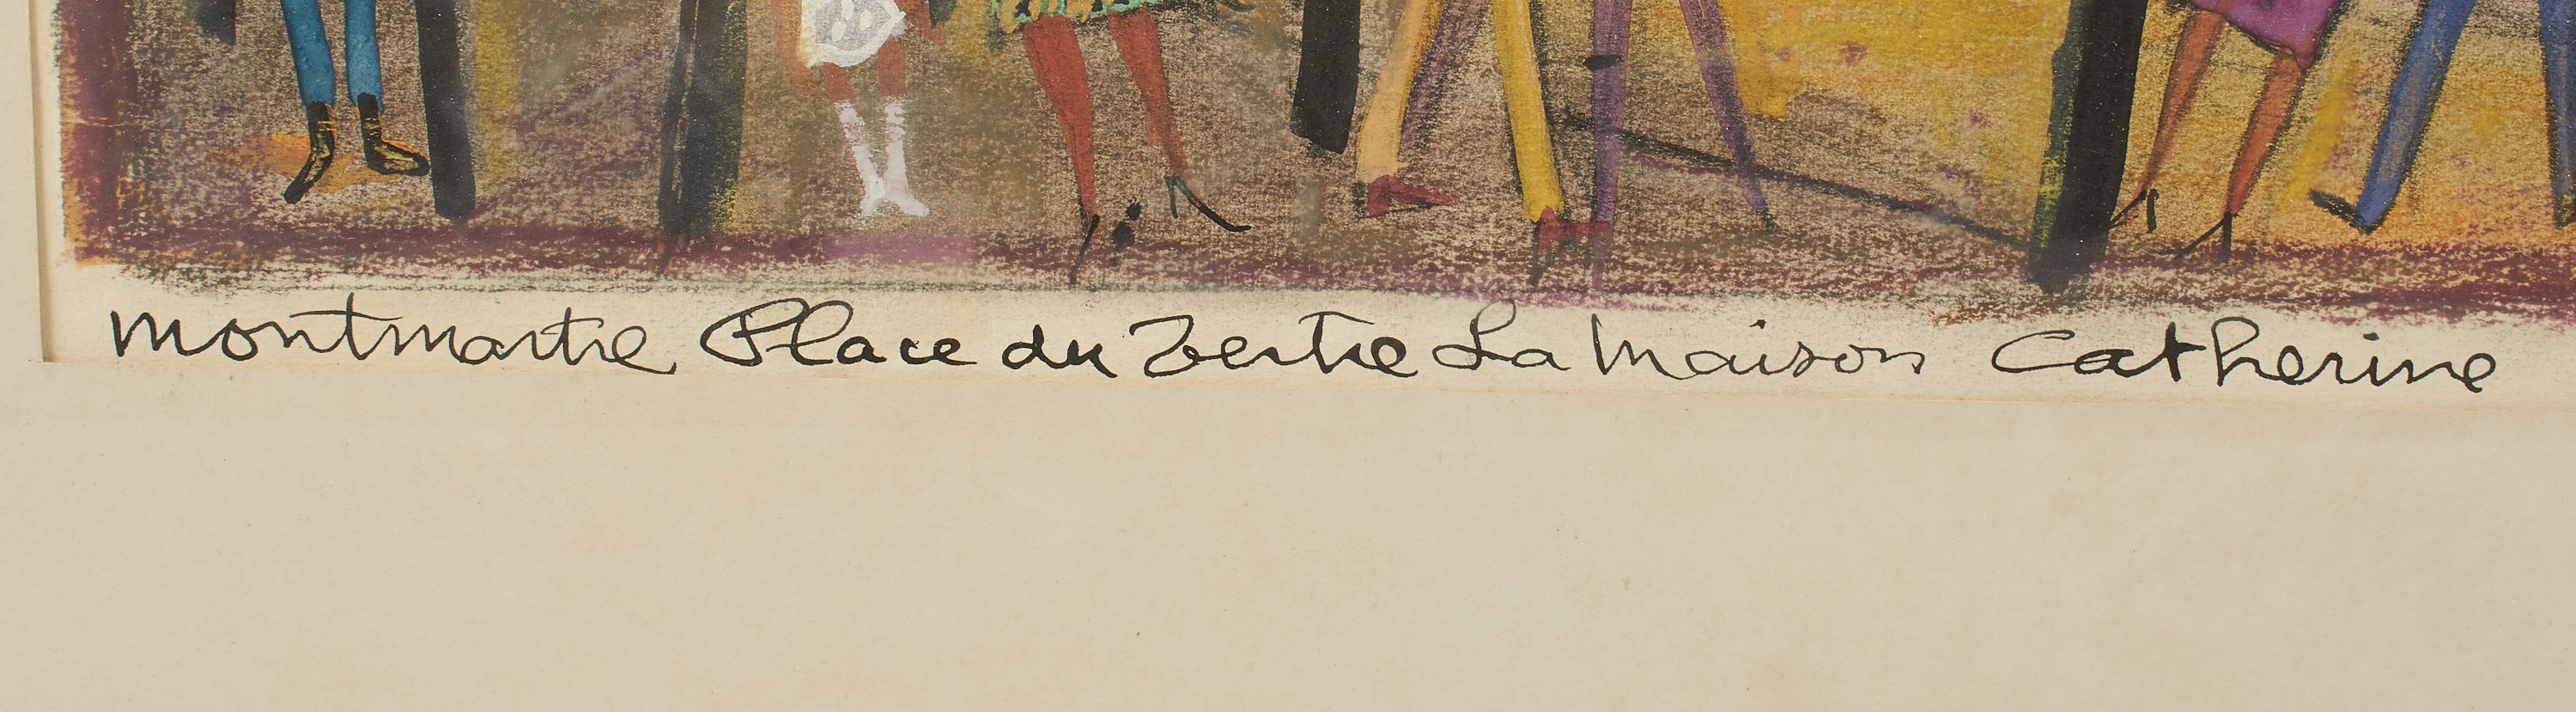 Montmartre Place du Tertre La Maison Catherine